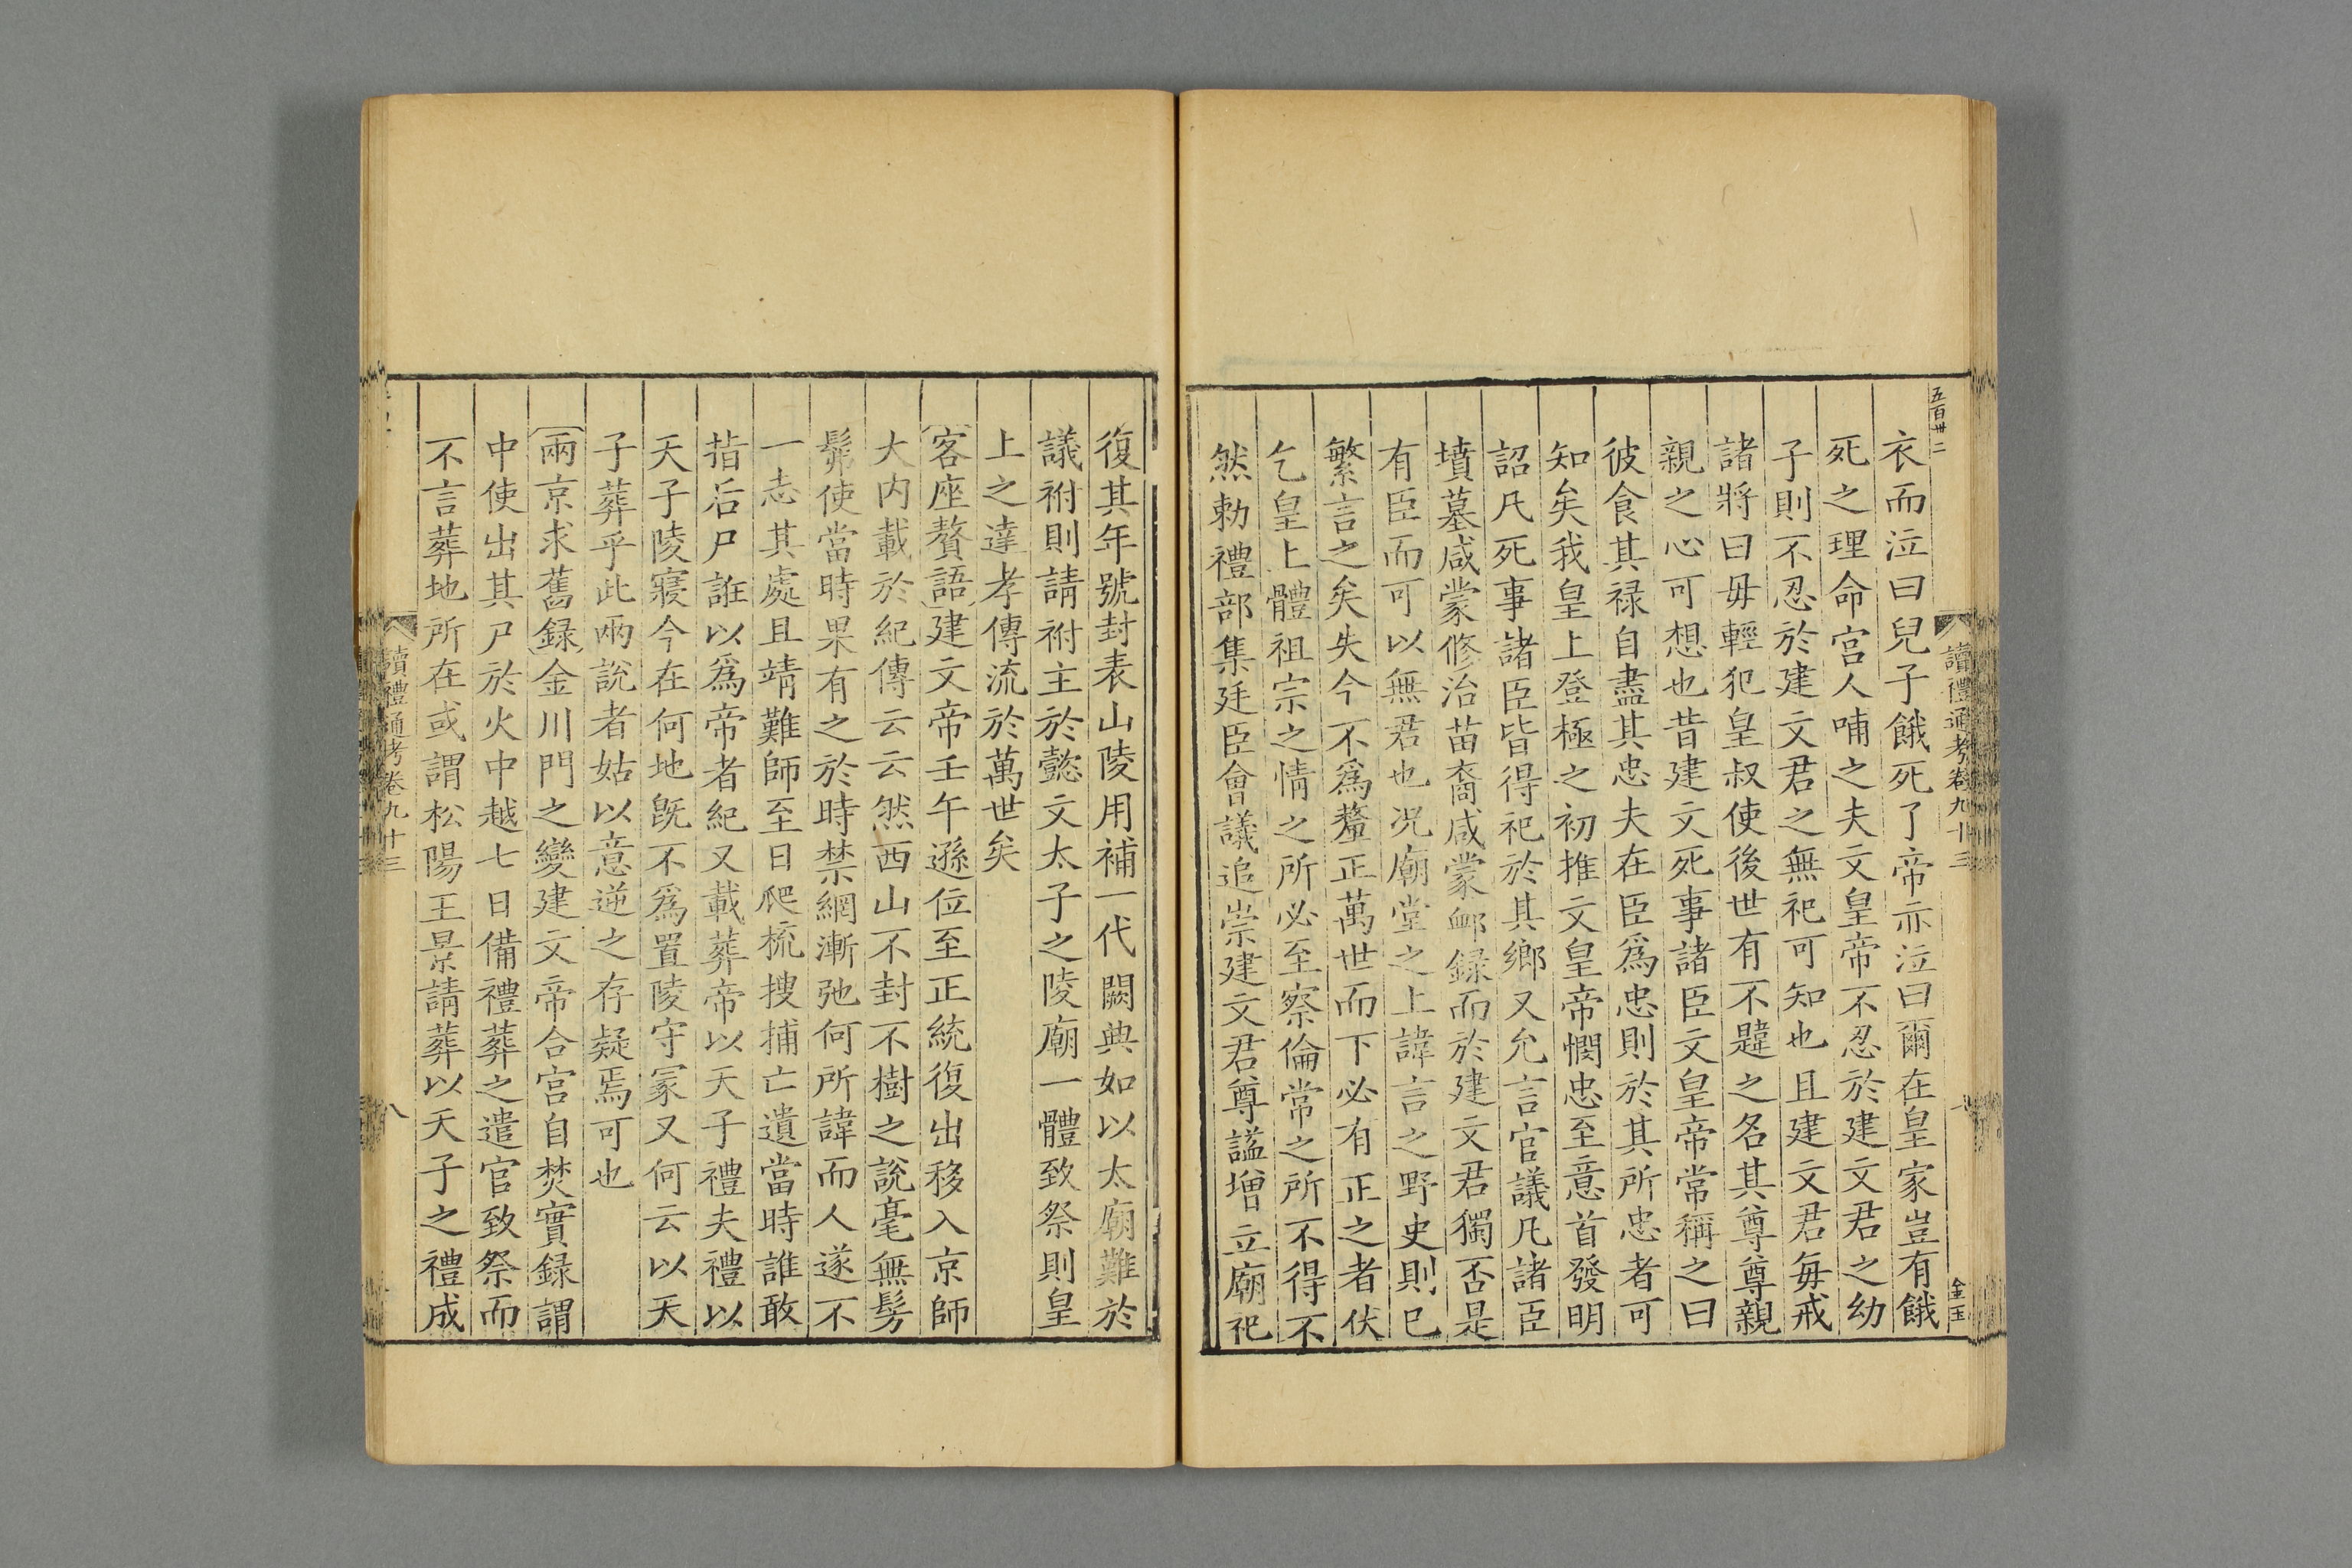 五百卅二
讀禮通考卷九十三
全玉
衣而泣曰兒子餓死了帝亦泣曰爾在皇家豈有餓
死之理命宫人哺之夫文皇帝不忍於建文君之幼
子則不忍於建文君之無祀可知也且建文君每戒
諸將曰毋輕犯皇叔使後世有不韙之名其尊尊親
親之心可想也昔建文死事諸臣文皇帝常稱之曰
彼食其禄自盡其忠夫在臣爲忠則於其所忠者可
知矣我皇上登極之初推文皇帝憫忠至意首發明
詔凡死事諸臣皆得祀於其鄉又允言官議凡諸臣
墳墓咸蒙修治苗裔咸蒙卹録而於建文君獨否是
有臣而可以無君也况廟堂之上諱言之野史則已
繁言之矣失今不爲釐正萬世而下必有正之者伏
乞皇上體祖宗之情之所必至察倫常之所不得不
然勅禮部集廷臣會議追崇建文君尊謚增立廟祀
復其年號封表山陵用補一代闕典如以太廟難於
議祔則請祔主於懿文太子之陵廟一體致祭則皇
上之達孝傳流於萬世矣
〔客座贅語〕建文帝壬午遜位至正統復出移入京師
大内載於紀傳云云然西山不封不樹之說毫無髣
髴使當時果有之於時禁網漸弛何所諱而人遂不
一志其處且靖難師至日爬梳搜捕亡遺當時誰敢
指后尸誑以爲帝者紀又載葬帝以天子禮夫禮以
天子陵寢今在何地旣不爲置陵守冡又何云以天
子葬乎此兩說者姑以意逆之存疑焉可也
〔兩京求舊録〕金川門之變建文帝合宫自焚實録謂
中使出其尸於火中越七日備禮葬之遣官致祭而
不言葬地所在或謂松陽王景請葬以天子之禮成
讀禮通考卷九十三
八